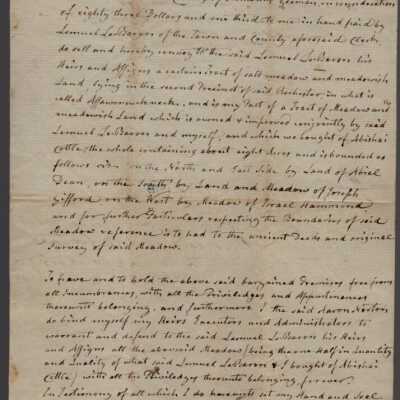 Yeoman, in consideration
of eighty three Dollars and one third to me in hand paid by
Lemuel LeBaron of the Town and County aforesaid Clerk,
do sell and hereby convey to the said Lemuel LeBaron his
Heirs and Assigns a certain Tract of salt meadow and meadowish
Land, lying in the second Precinct of said Rochester in what is
called and is my Part of a Tract of Meadow and
meadowish Land which is owned & improved by said
Lemuel LeBaron and myself, and which we bought of Abishai
Cottle, the whole containing about eight Acres and is bounded as
follows viz. on the North and East Side by Land of Abiel
Dean, on the South by Land and Meadow of Joseph
Gifford on the West by Meadow of Israel Hammond
and for further Particulars respecting the Boundaries of said
Meadow reference is to had to the ancient Deeds and original
Survey of said Meadow.
To have and to hold the above said bargained Premises free from
all Incumbrances, with all the Priviledges and Appurtenances
thereunto belonging, and furthermore I the said Aaron Norton
do bind myself my Heirs Executors and Administrators to
warrant and defend to the said Lemuel LeBaron his Heirs
and Assigns all the abovesaid Meadow (being the one Half in Quantity
and Quality of what said Lemuel LeBaron & I bought of Abishai
Cottle) with all the Priviledges thereunto belonging forever
In Testimony of all which I do hereunto set my Hand and Seal